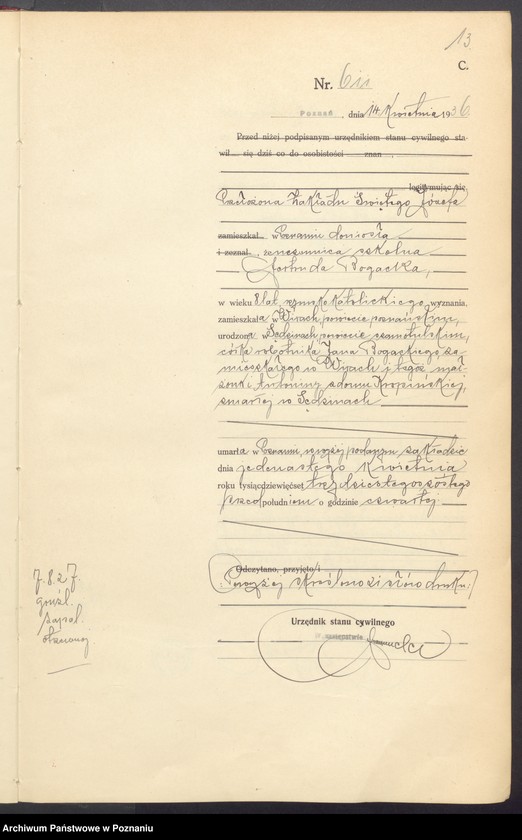 13
C.
Nr. 611
Poznań, dnia 14 Kwietnia 1936
Przed niżej podpisanym urzędnikiem stanu cywilnego sta-
wił się dziś co do osobistości znan
legitymując się
Przełożona Zakładu Świętego Józefa
zamieszkał w Poznaniu doniosła
i zeznał, że uczennica szkolna
Bogacka,
w wieku 8 lat, rzymsko katolickiego wyznania,
zamieszkała w Wirach, powiecie poznańskim,
urodzona w Sędzinach, powiecie szamotulskim,
córka robotnika Jana Bogackiego za-
mieszkałego w Wirach i tegoż mał-
żonki Antoniny z domu
zmarłej w Sędzinach
umarła w Poznaniu, wyżej podanym zakładzie
dnia jedenastego Kwietnia
roku tysiącdziewięćset trzydziestegoszóstego
przed południem o godzinie czwartej.
Odczytano, przyjęto i
Powyżej skreślono słów druku.
Urzędnik stanu cywilnego
W zastępstwie
7.8.27.
gruźl.
zapal.
Archiwum Państwowe w Poznaniu